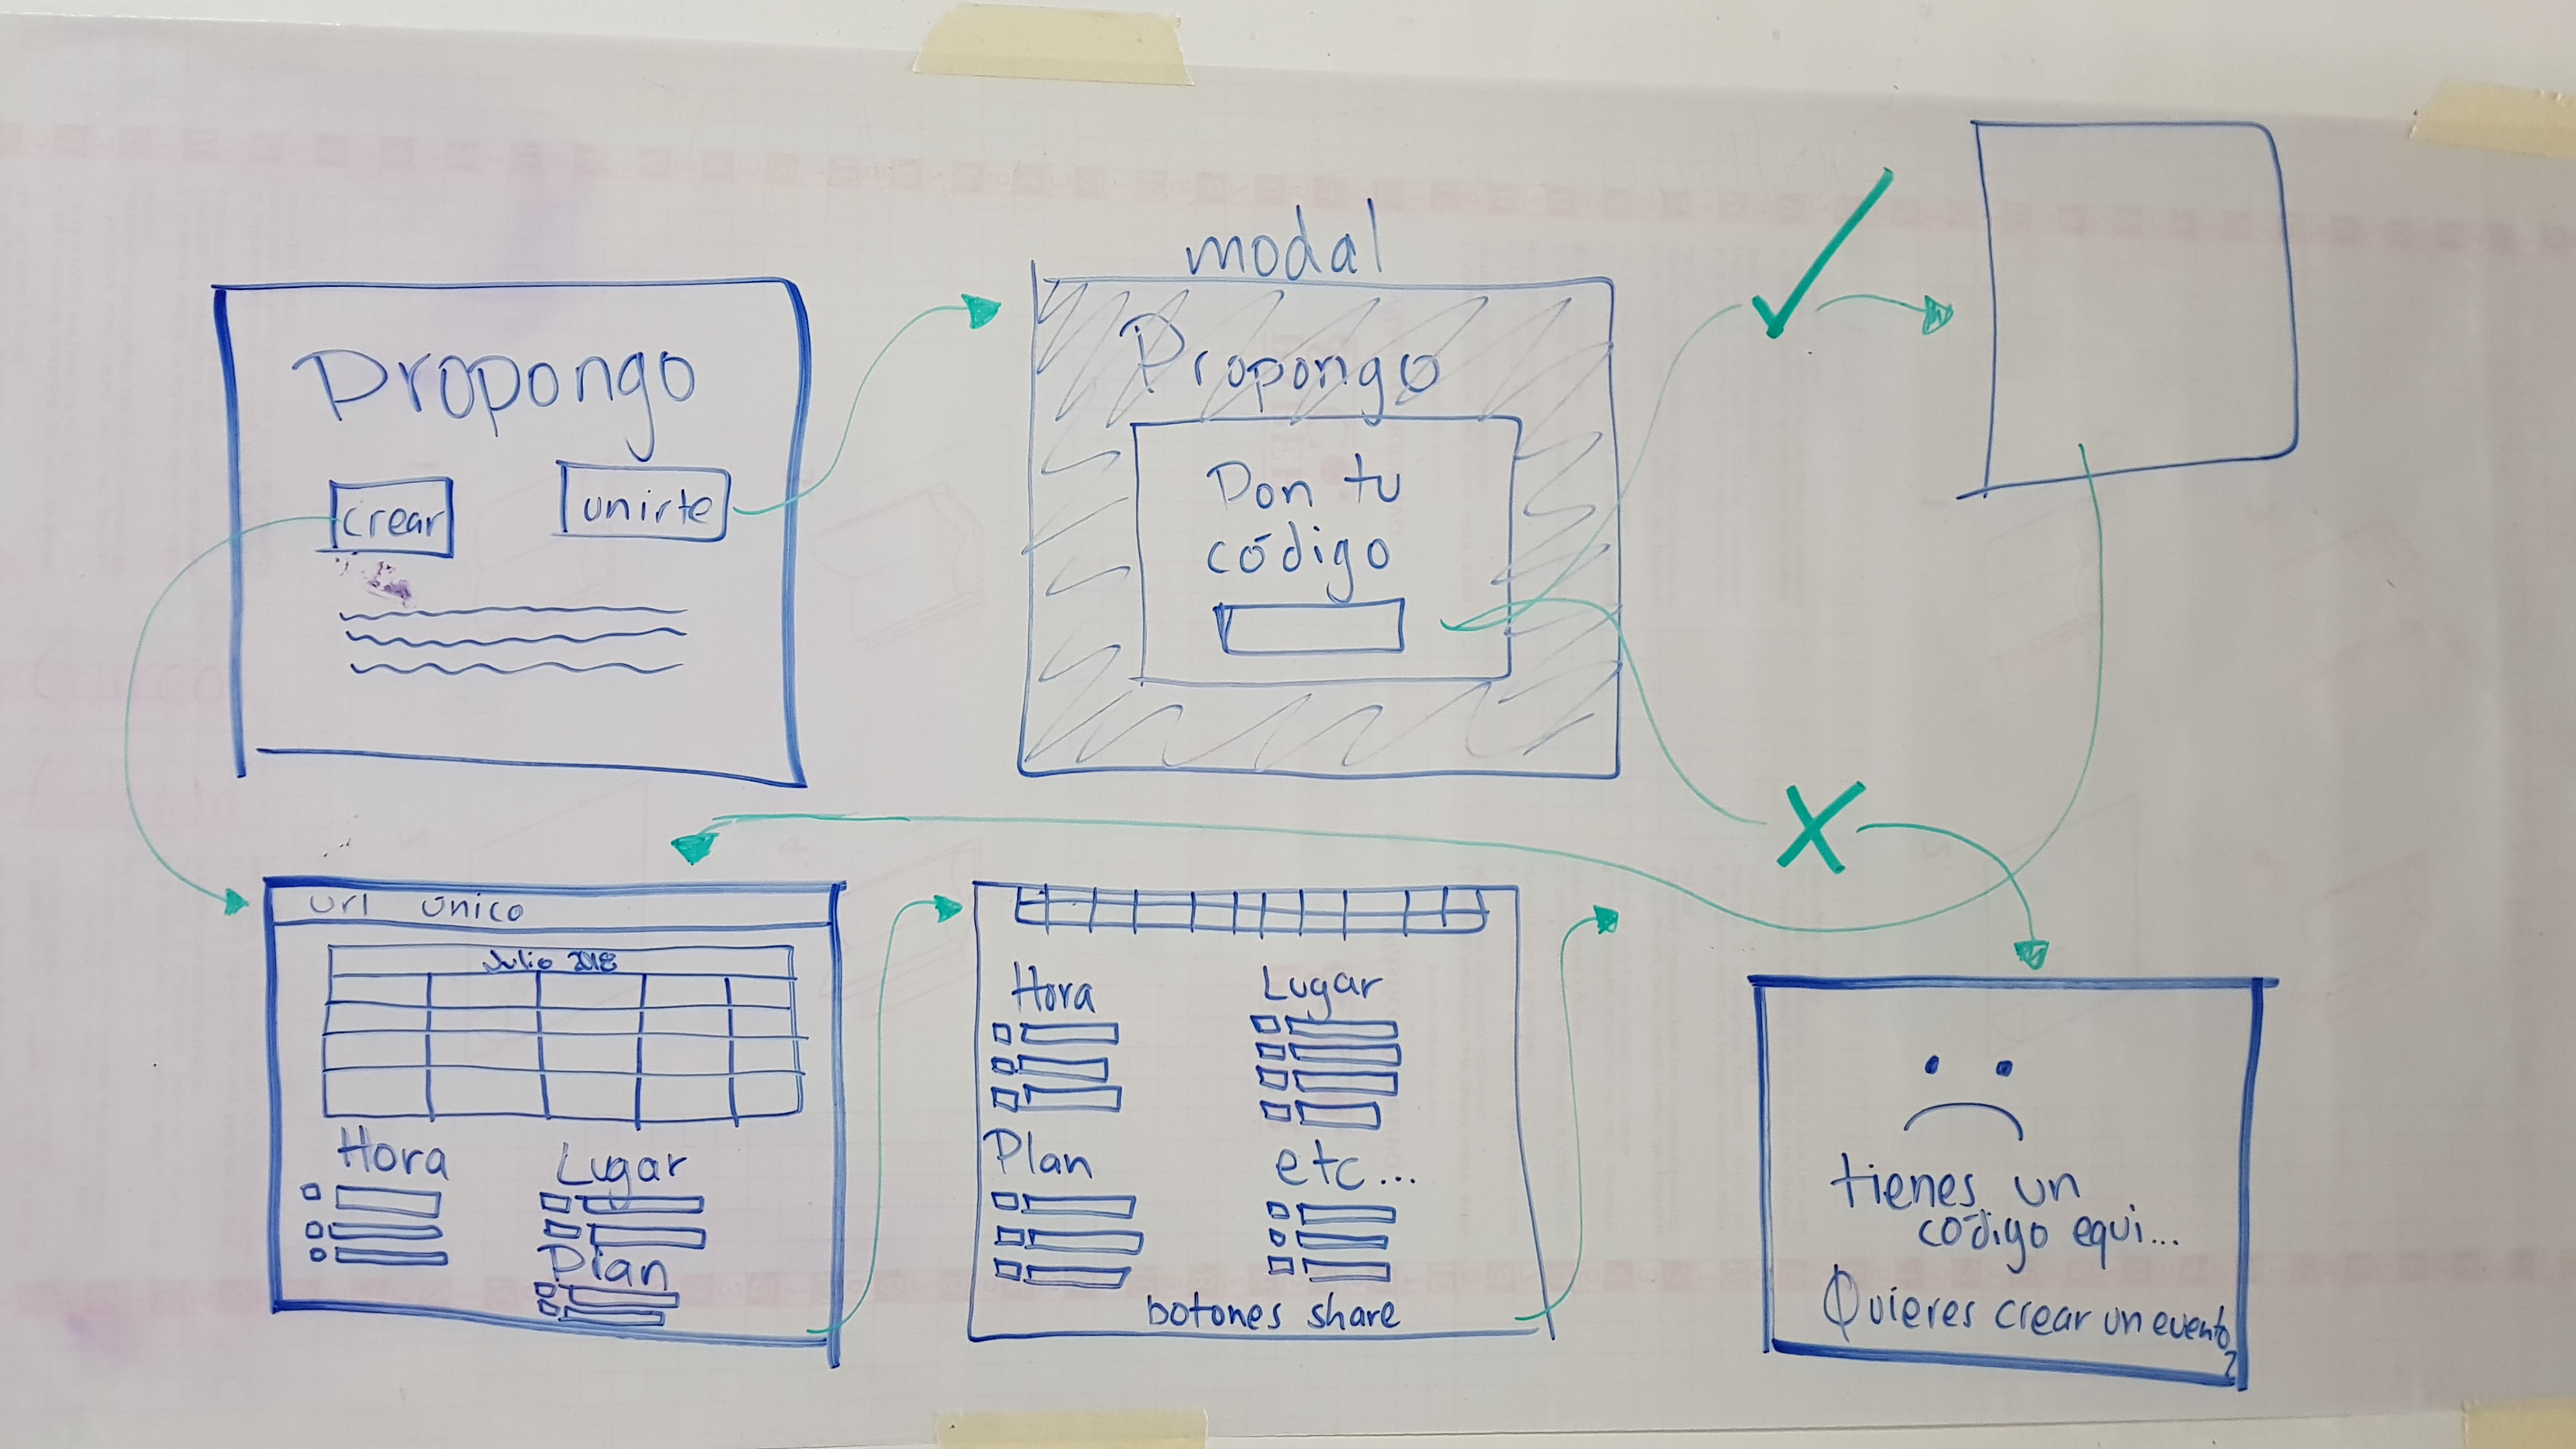 Propongo
crear
unirte
modal
Propongo
Pon tu
código
url único
Julio 2018
Hora
Lugar
Plan
Hora
Lugar
Plan
etc...
botones share
tienes un
código equi...
Quieres crear un evento
?